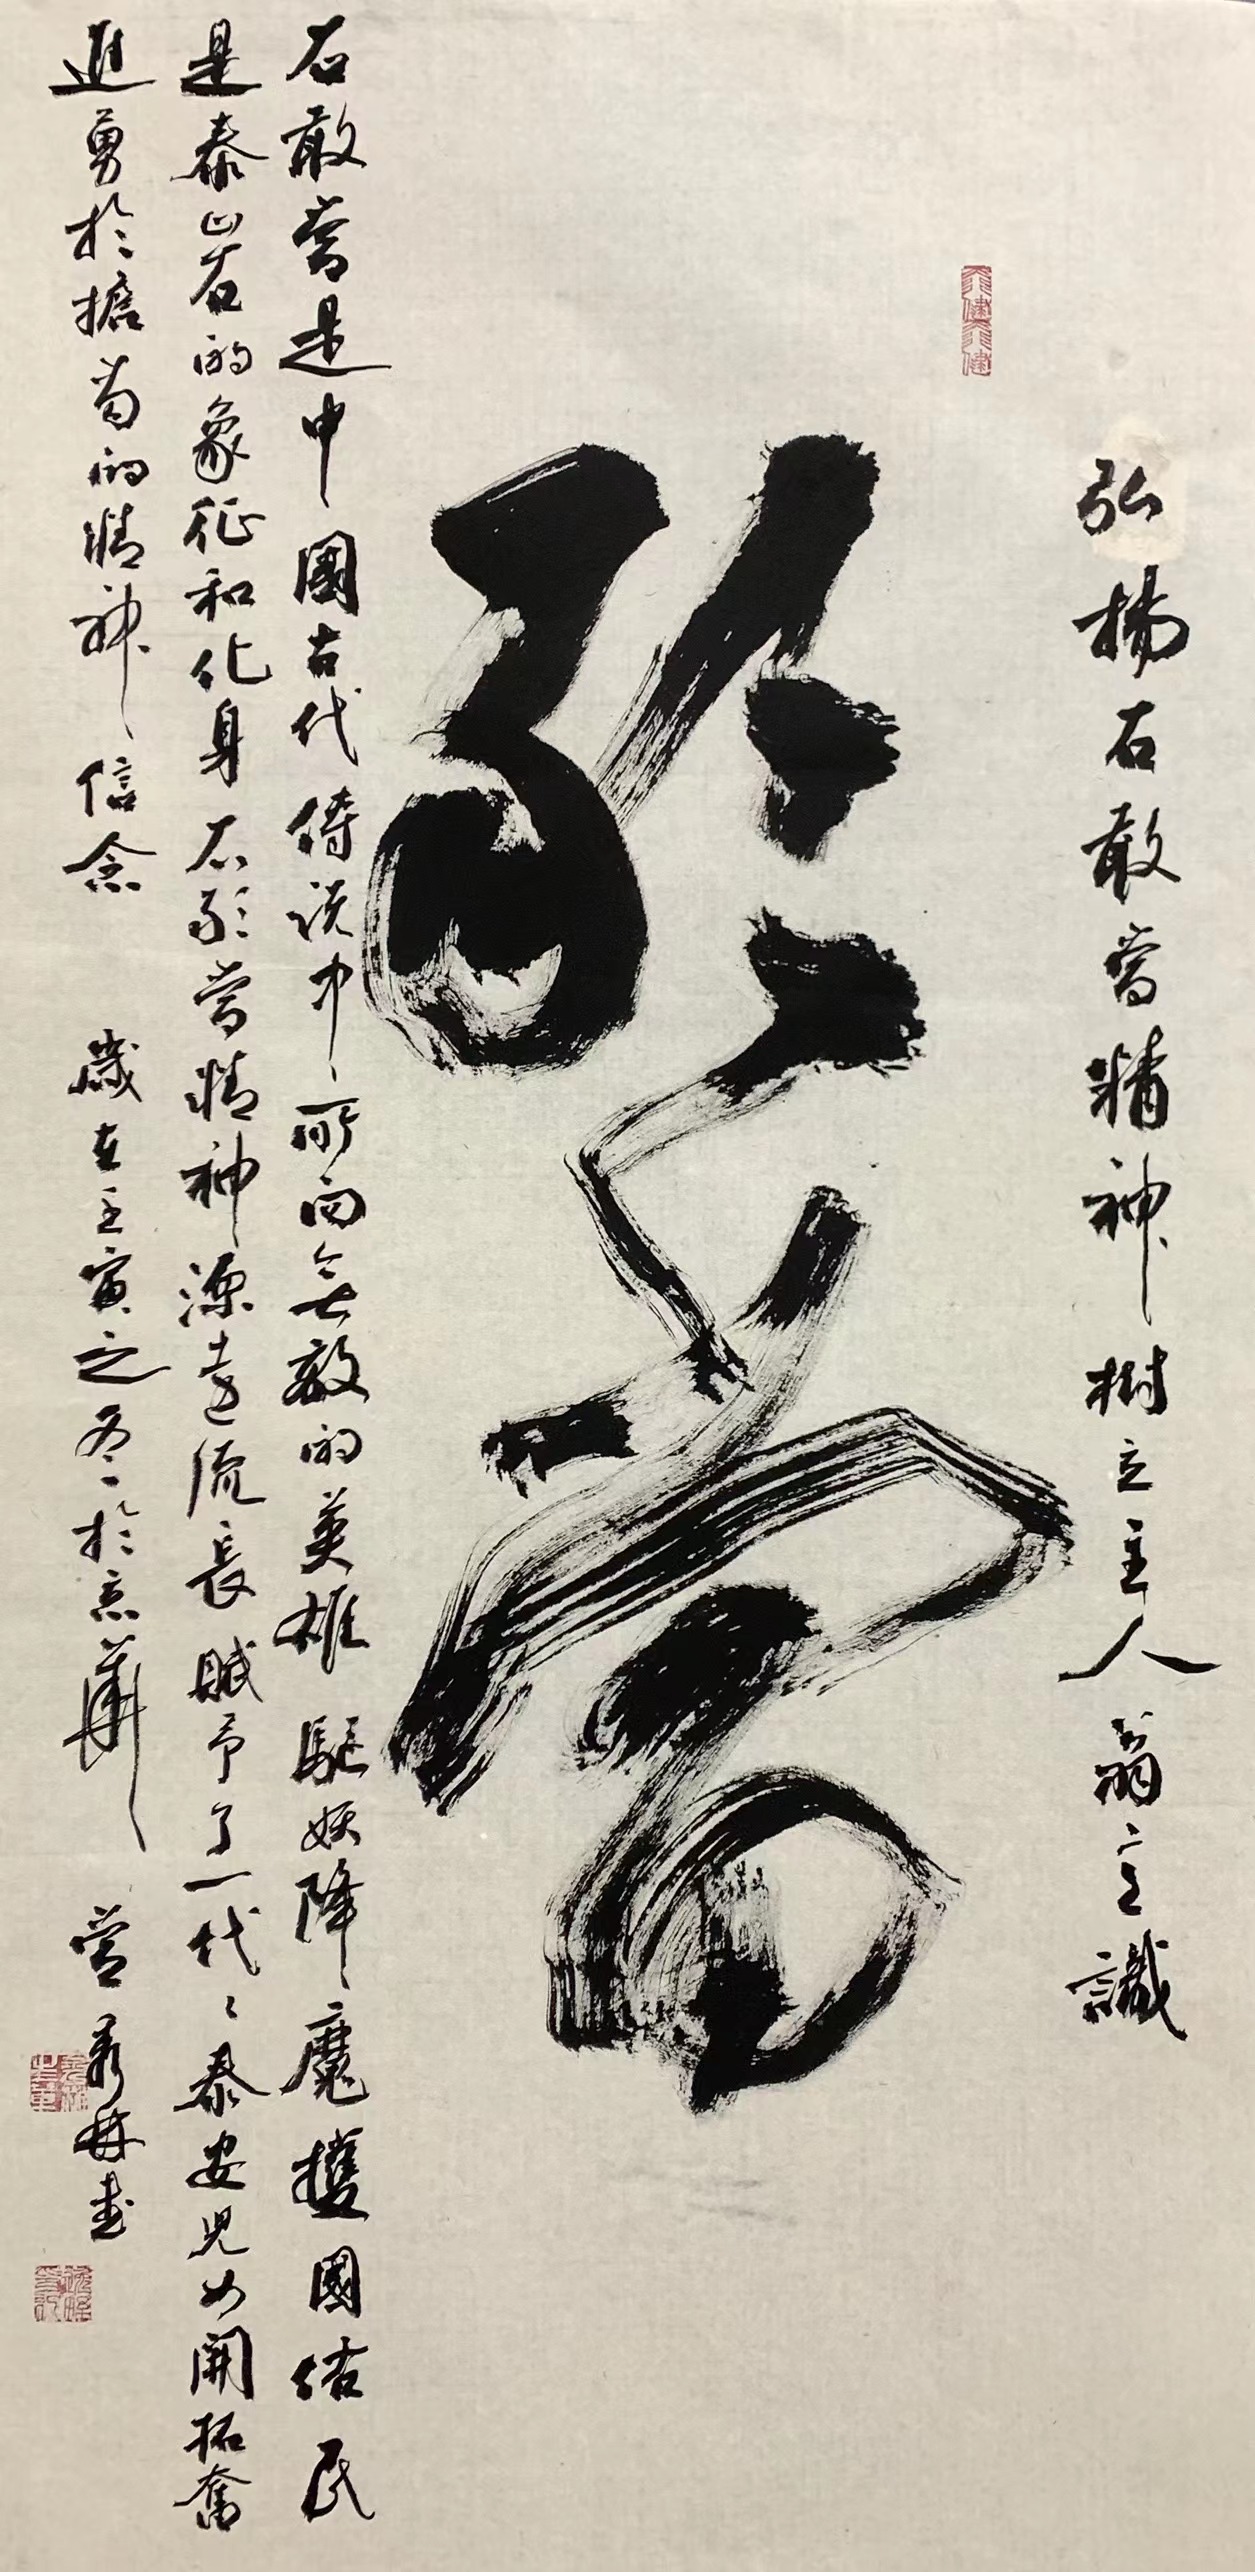 弘揚石敢當精神樹立主人翁意識
敢當
石敢當是中國古代傳說中所向無敵的英雄驅妖降魔護國佑民
是泰山石的象征和化身石敢當精神源遠流長賦予了一代代泰安兒女開拓奮
進勇於擔當的精神信念 歲在壬寅之冬於京華